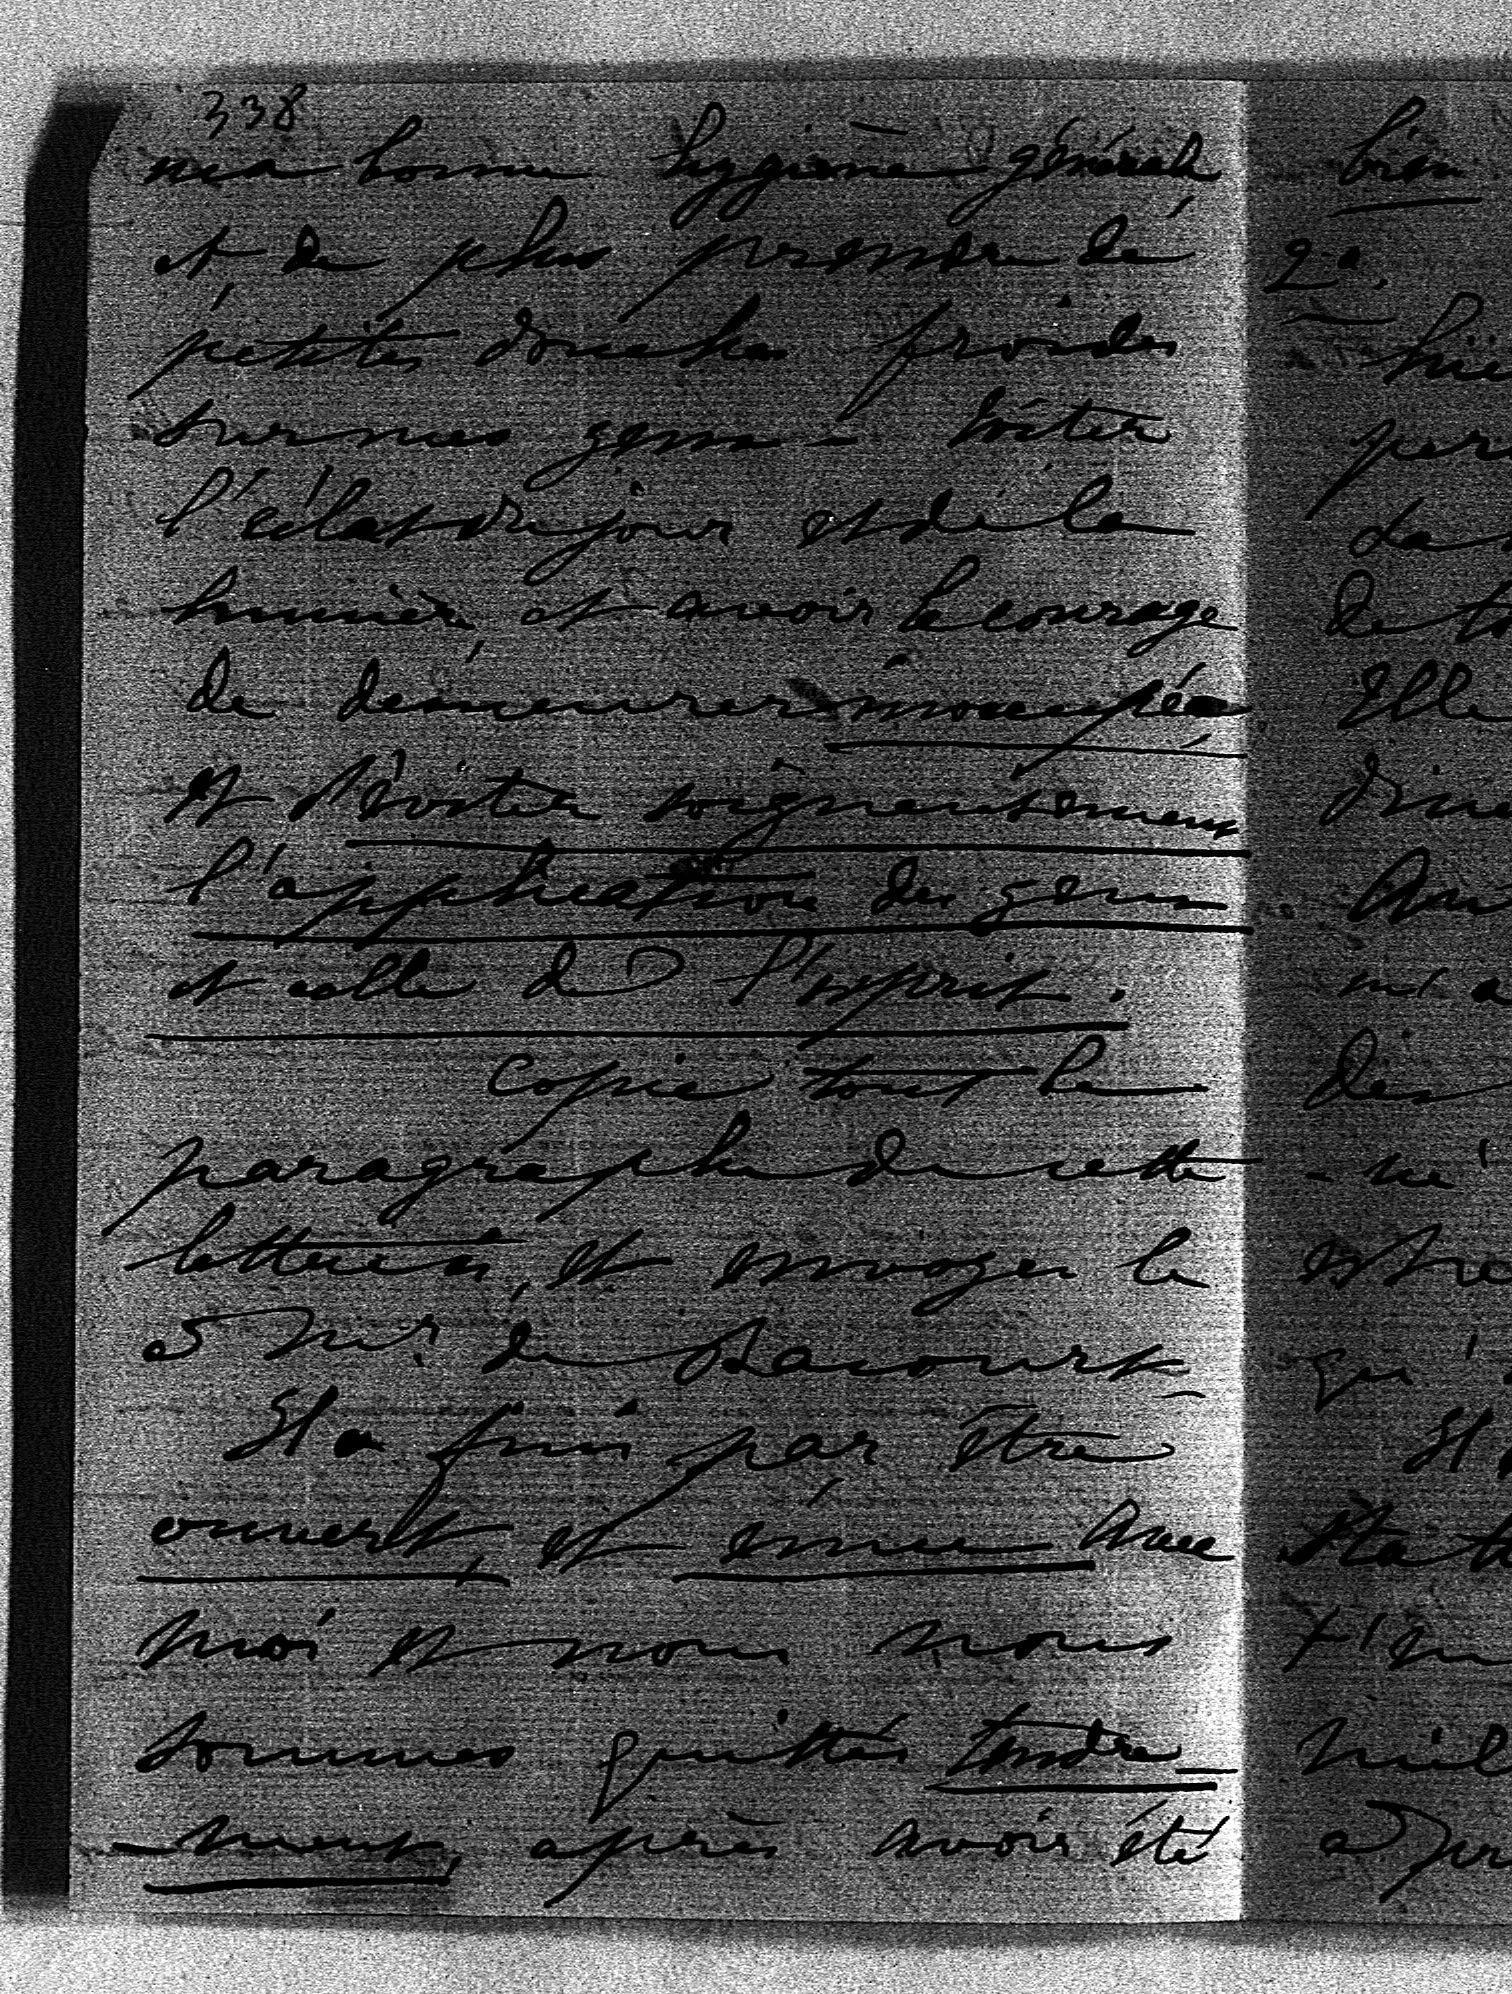 338
ma bonne hygiène générale
et de plus prendre de
petites douches froides
sur mes yeux - éviter
l'éclat du jour et de la
lumière, et avoir le courage
de demeurer inoccupée
et d'éviter soigneusement
l'application des yeux
et celle de l'esprit.
Copiez tout le
paragraphe de cette
lettre, et envoyez le
à Mr. de Bacourt
Il a fini par être
ouvert, et ému avec
moi et nous nous
sommes quittés tendre
-ment, après avoir été
bien
hie
per
La
de to
Elle
dine
m'a
- ne
qu'
Il